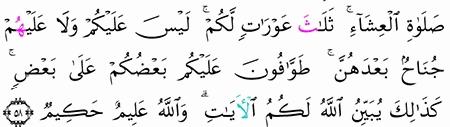 صَلَوٰةِ الْعِشَآءِ ۚ ثَلٰثُ عَوْرَاتٍ لَّكُمْ ۚ لَيْسَ عَلَيْكُمْ وَلَا عَلَيْهِمْ
جُنَاحٌ بَعْدَهُنَّ ۚ طَوّٰفُونَ عَلَيْكُم بَعْضُكُمْ عَلٰى بَعْضٍ ۚ
كَذَٰلِكَ يُبَيِّنُ اللَّهُ لَكُمُ الْأَيَـٰتِ ۗ وَاللَّهُ عَلِيمٌ حَكِيمٌ ﴿٥٨﴾